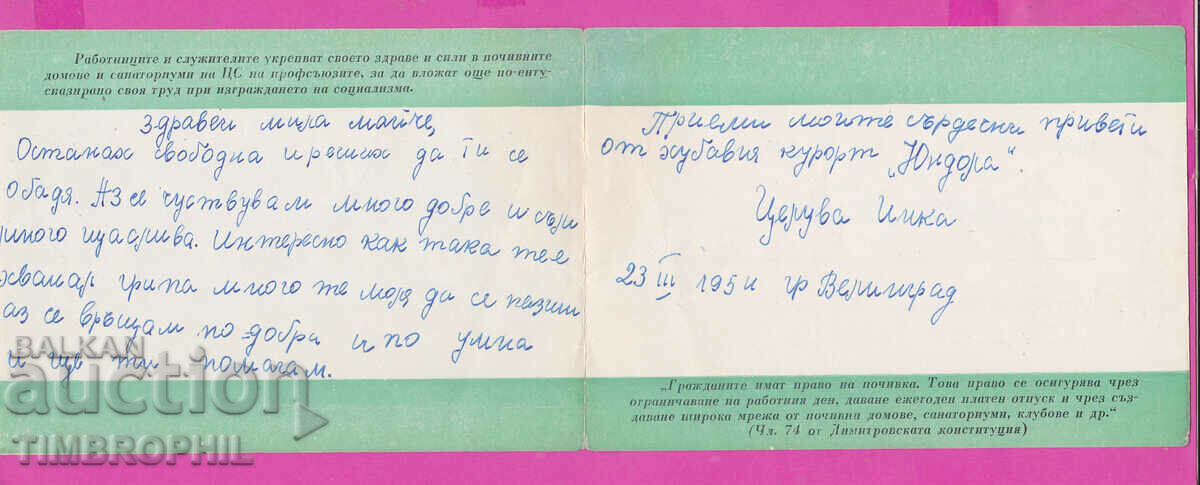 Работниците и служителите укрепват своето здраве и сили в почивните
домове и санаториуми на ЦС на профсъюзите, за да вложат още по-енту-
сказирано своя труд при изграждането на социализма.
Здравей мила майче,
Останах свободна и реших да ти се
обадя. Аз се чуствувам много добре и съм
много щастлива. Интересно как така те е
хванал грипа много те моля да се пазиш
аз се връщам по-добра и по умна
и ще ти помагам.
Приеми моите сърдечни привети
от хубавия курорт „Юндола“.
Целува Инка
23 III 1954 гр Велинград
„Гражданите имат право на почивка. Това право се осигурява чрез
ограничаване на работния ден, даване ежегоден платен отпуск и чрез съз-
даване широка мрежа от почивни домове, санаториуми, клубове и др.“
(Чл. 74 от Димитровската конституция)
BALKAN
auction
TIMBROPHIL